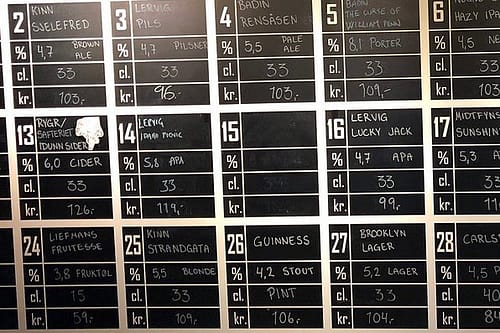 2 KINN SVELEFRED
% 4,7 BROWN ALE
cl. 33
kr. 103,-
3 LERVIG PILS
% 4,7 PILSNER
cl. 33
kr. 96.-
4 BADIN RENSÅSEN
% 5,5 PALE ALE
cl. 33
kr. 103,-
5 BADIN THE CURSE OF WILLIAM PENN
% 8,1 PORTER
cl. 33
kr. 109,-
6
HAZY IPA
% 4,5
cl. 33
kr. 103,
13 RYGR/ SAFTERIET IDUNN SIDER
% 6,0 CIDER
cl. 33
kr. 126.-
14 LERVIG
% 5,8 APA
cl. 33
kr. 119,-
15
%
cl.
kr.
16 LERVIG LUCKY JACK
% 4,7 APA
cl. 33
kr. 99,
17 MIDTFYNS SUNSHIN
% 5,3
cl. 33
kr. 11
24 LIEFMANS FRUITESSE
% 3,8 FRUKTØL
cl. 15
kr. 59,-
25 KINN STRANDGATA
% 5,5 BLONDE
cl. 33
kr. 109,-
26 GUINNESS
% 4,2 STOUT
cl. PINT
kr. 106,-
27 BROOKLYN LAGER
% 5,2 LAGER
cl. 33
kr. 104,-
28 CARLS
% 4,5
cl. 40
kr. 8